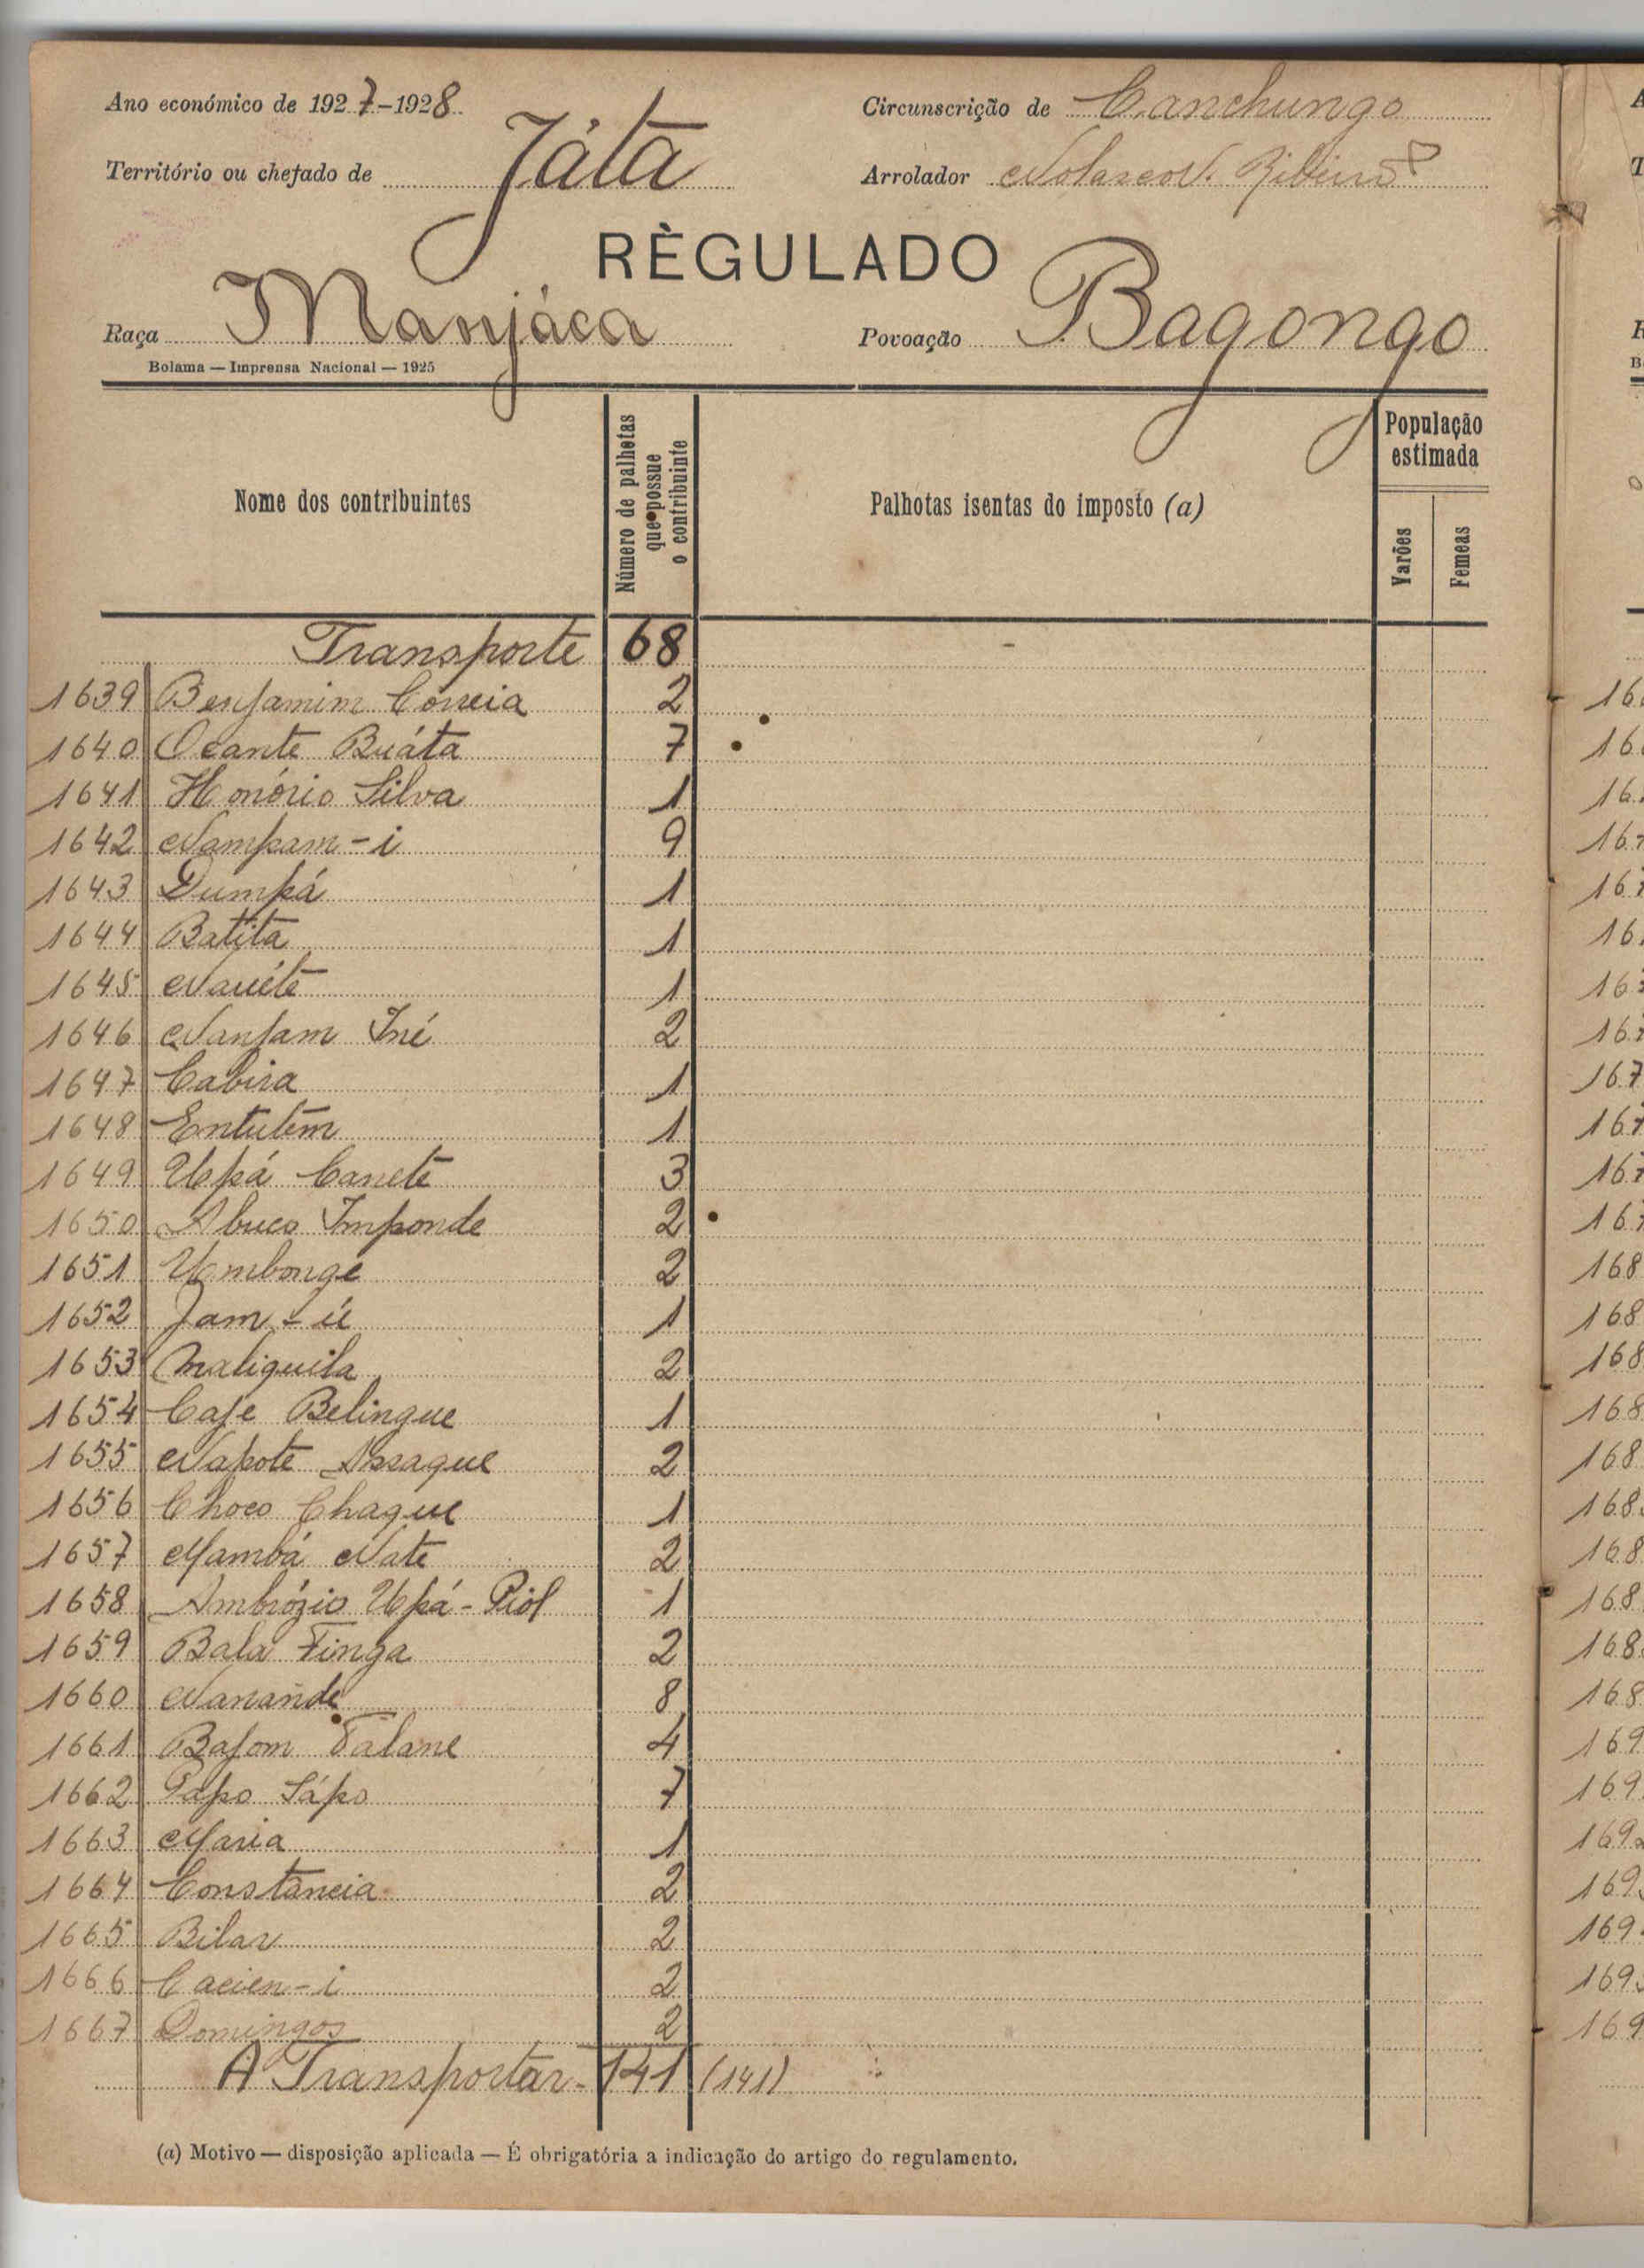 Ano económico de 1927-1928
Circunscrição de Canchungo
Território ou chefado de Játa
Arrolador Nolasco N. Ribeiro
RÈGULADO
Raça Manjáca
Povoação Bagongo
Bolama — Imprensa Nacional — 1925
Nome dos contribuintes
Número de palhetas que possue o contribuinte
Palhotas isentas do imposto (a)
População estimada
Varões
Femeas
Transporte 68
1639 Benjamim Correia 2
1640 Ocante Buáta 7
1641 Honório Silva 1
1642 Nampam-i 9
1643 Dumpá 1
1644 Batita 1
1645 1
1646 Nanjam Iné 2
1647 Cabira 1
1648 Entutem 1
1649 Upá Canete 3
1650 Abuco Imponde 2
1651 Umbonge 2
1652 Jam-ii 1
1653 Maliquila 2
1654 Caje Belingue 1
1655 Napote Assaque 2
1656 Choco Chaque 1
1657 Mambá Nate 2
1658 Ambrózio Upá-Piol 1
1659 Bala Finga 2
1660 Nanande 8
1661 Bajom Talane 4
1662 Papo Sápo 7
1663 Maria 1
1664 Constância 2
1665 Bilar 2
1666 Cacien-i 2
1667 Domingos 2
A Transportar 141 (141)
(a) Motivo — disposição aplicada — É obrigatória a indicação do artigo do regulamento.